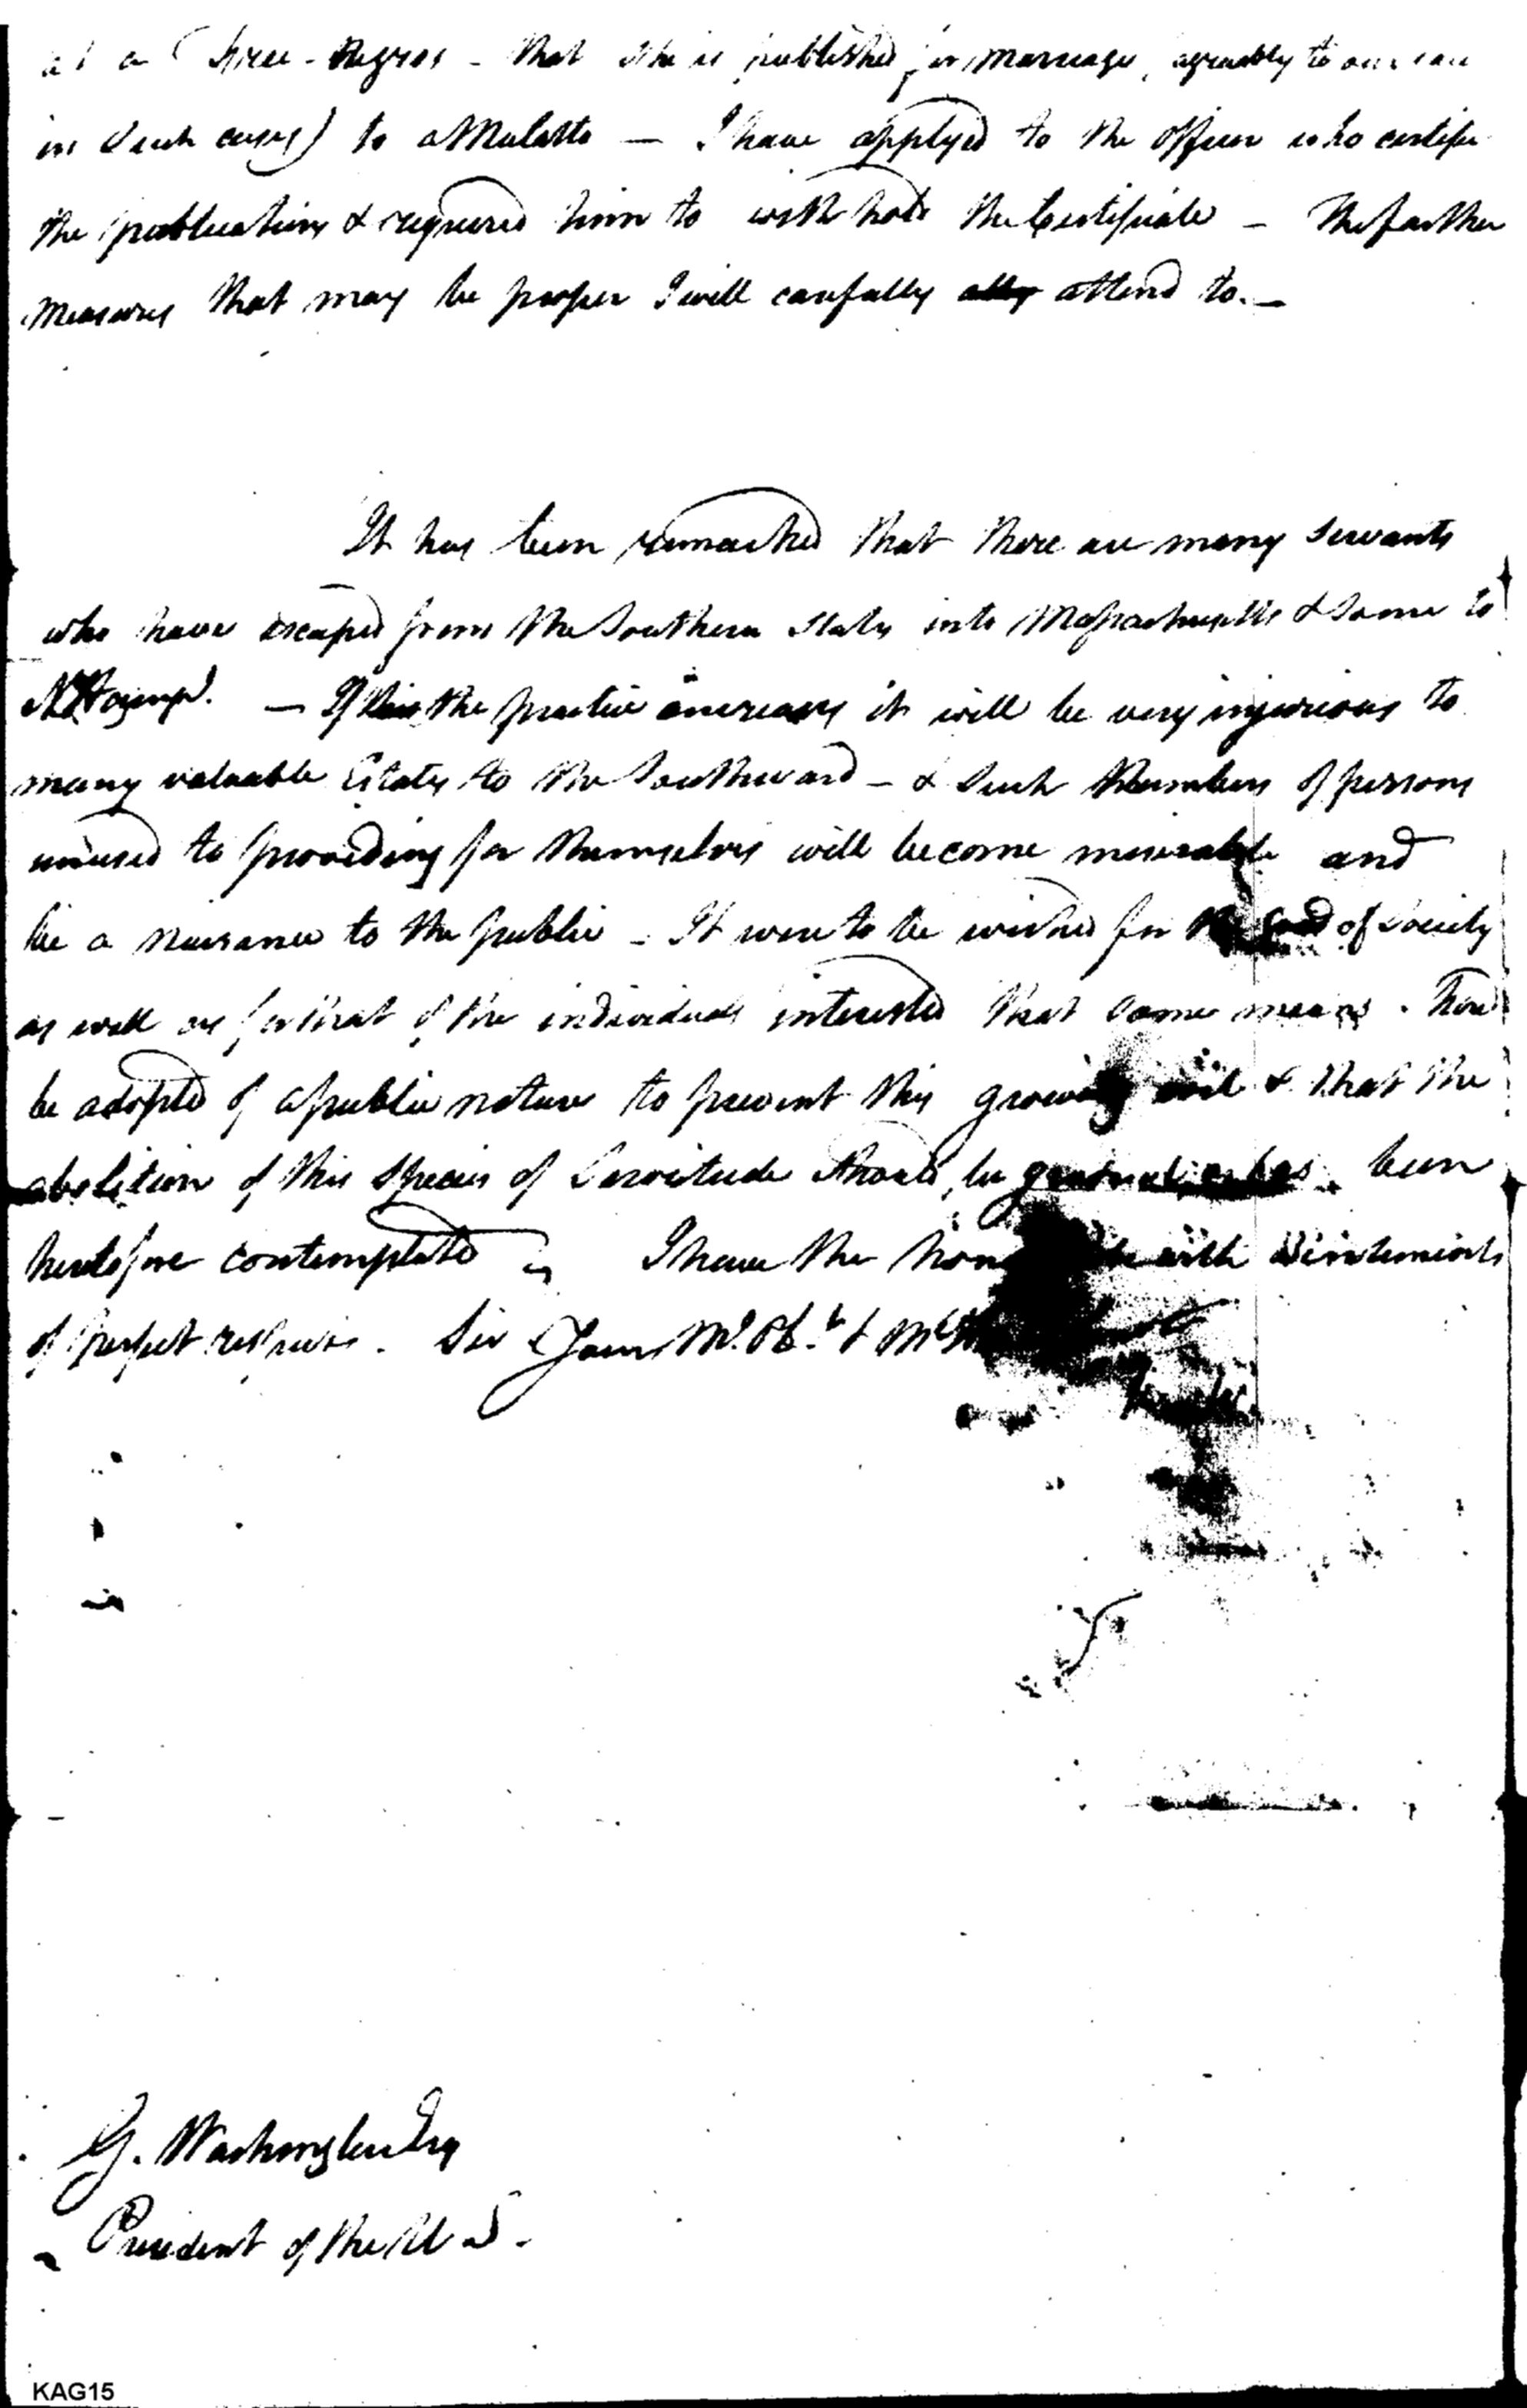 a Free-Negros - that she is published for marriage, agreeably to our law
in such cases) to a Mulatto — I have applyed to the officer who certifies
the publications & required him to with hold the Certificate - The farther
measures that may be proper I will carefully attend to. —
It has been remarked that there are many servants
who have escaped from the Southern States into Massachusetts & some to
N. Hampr. — If the practice increases it will be very injurious to
many valuable Estates to the Southward - & such Numbers of persons
unused to providing for themselves will become miserable and
be a nuisance to the public - It were to be wished for the good of Society
as well as for that of the individuals interested that some means
be adopted of a public nature to prevent this growing evil & that the
abolition of this Species of Servitude should be gradual as has been
heretofore contemplated I have the honor with Sentiments
of perfect respect. Sir Your Mt. Obt. &
G. Washington Esq
President of the U S.
KAG15